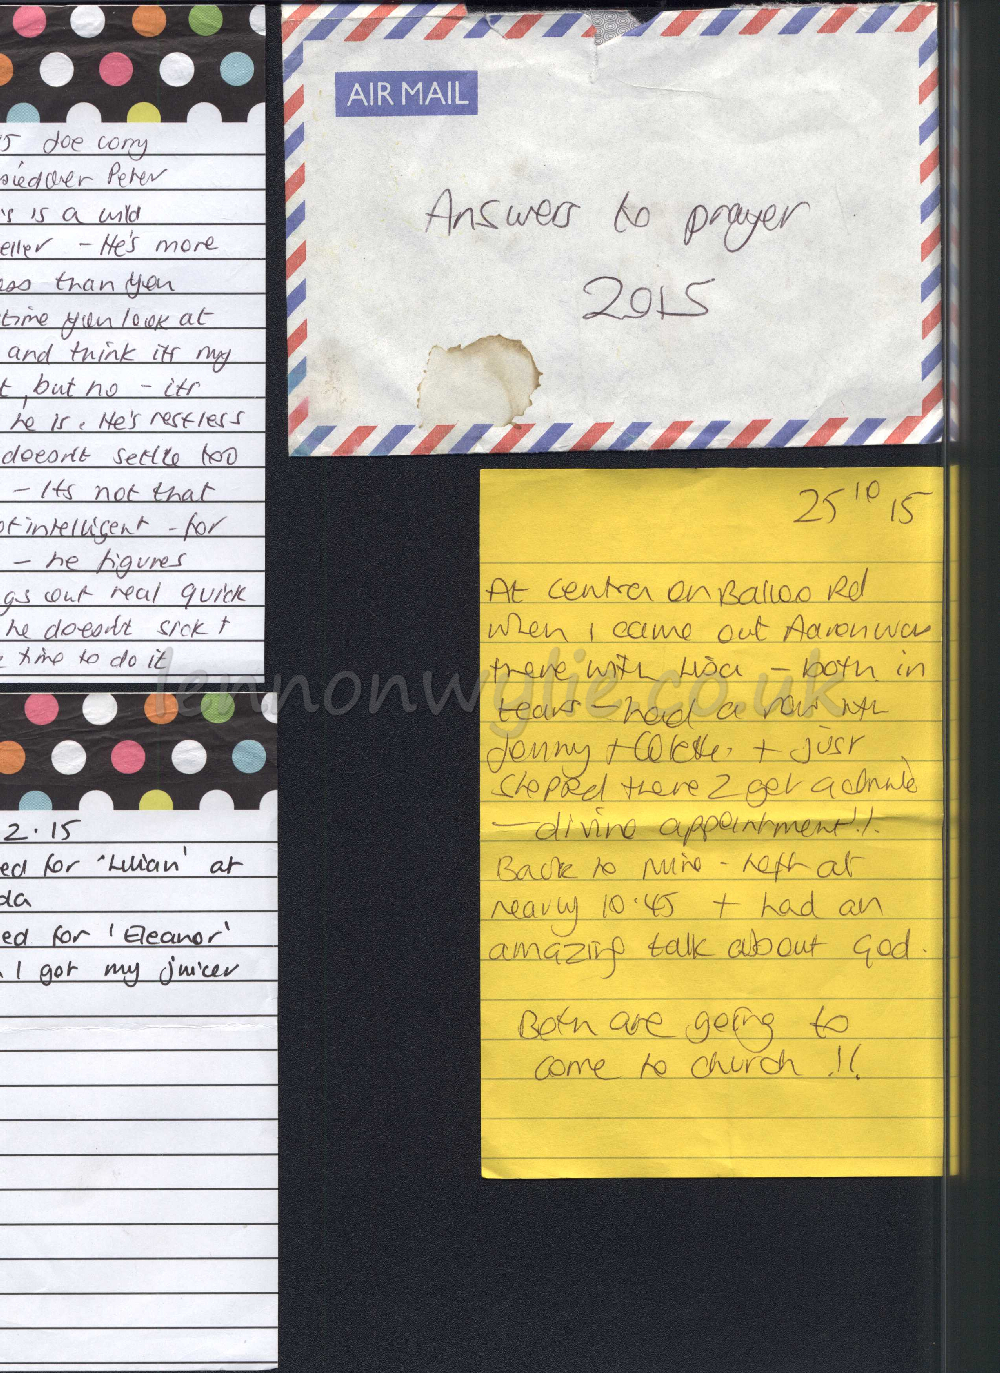 15 Joe Corry
Peter
s is a wild
eller - He's more
ess than you
time you look at
and think its my
t, but no - its
he is. He's restless
doesnt settle too
- Its not that
ot intelligent - for
- he figures
gs out real quick
he doesnt sick t
time to do it
2.15
ed for 'Lilian' at
da
ed for 'Eleanor'
I got my juicer
AIR MAIL
Answers to prayer
2015
25 10 15
At Centra on Balloo Rd
when I came out Aaron was
there with Lisa - both in
tears - had a row with
Jonny + Colette. + just
stopped there 2 get a drink
- divine appointment!!
Back to mine - left at
nearly 10.45 + had an
amazing talk about God.
Both are going to
come to church !!
lennonwylie.co.uk